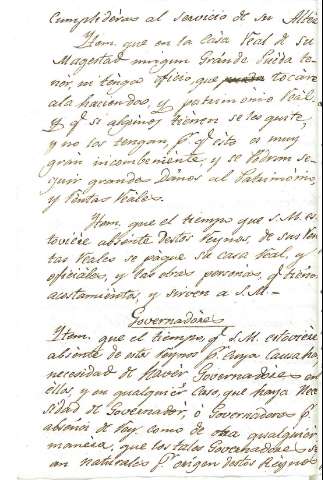 Cumplideras al servicio de su Alteza
Item. que en la Casa Real de su
Magestad ningun Grande Pueda te-
ner, ni tenga oficio, que rocare
ala hacienda, y patrimonio Real,
y q.e si algunos tienen se les quite,
y no los tengan, p.r q.e esto es muy
gran incombeniente, y se Podrian se-
guir grandes Daños al Patrimonio,
y Rentas Reales.
Item. que el tiempo que S.M. es-
toviere absente destos Reynos, de sus Ren-
tas Reales se pague la casa Real, y
oficiales, y las otras personas, q.e tienen
acostamientos, y sirven a S.M.-
Governadores
Item. que el tiempo, q.e S.M. estoviere
absente de estos Reynos p.r cuya causa hay
necesidad de haver Governadores en
ellos, y en qualquier caso, que haya Nece-
sidad de Governador, ó Governadores p.r
absencia de Rey, como de otra qualquier
manera, que los tales Governadores se-
an naturales p.r origen destos Reynos